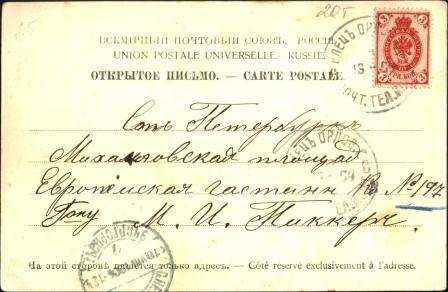 205
ВСЕМІРНЫЙ ПОЧТОВЫЙ СОЮЗЪ. РОССІЯ.
UNION POSTALE UNIVERSELLE. RUSSIE.
ОТКРЫТОЕ ПИСЬМО. — CARTE POSTALE.
ЕЛЕЦЪ ОРЛОВ
ПЧТ. ТЕЛ.
Санъ Петербургъ
Михайловская площадь
Европейская гостин № 197
Гону М. И. Пиккеръ.
На этой сторонѣ пишется только адресъ. — Côté réservé exclusivement à l'adresse.